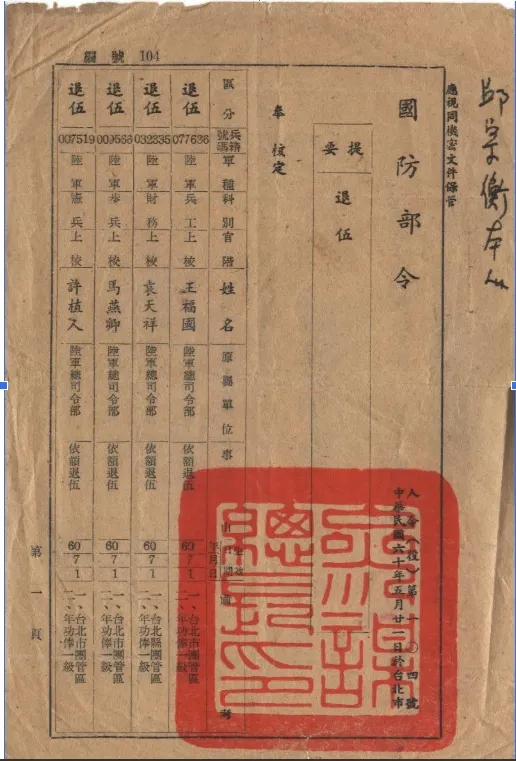 編號 104
邱宗衡
應視同機密文件保管
國防部令
人令(役)第一〇四號
中華民國六十年五月廿一日於台北市
提要
退伍
奉核定
區分 兵籍號碼 軍種科別官階 姓名 原屬單位 事由 生效日期 年月日 備考
退伍 077636 陸軍兵工上校 王福國 陸軍總司令部 依額退伍 60 7 1 一、台北市團管區 二、年功俸一級
退伍 032235 陸軍財務上校 袁天祥 陸軍總司令部 依額退伍 60 7 1 一、台北縣團管區 二、年功俸一級
退伍 陸軍步兵上校 馬燕卿 陸軍總司令部 依額退伍 60 7 1 一、台北市團管區 二、年功俸一級
退伍 007519 陸軍憲兵上校 許植人 陸軍總司令部 依額退伍 60 7 1 一、台北市團管區 二、年功俸一級
第一頁